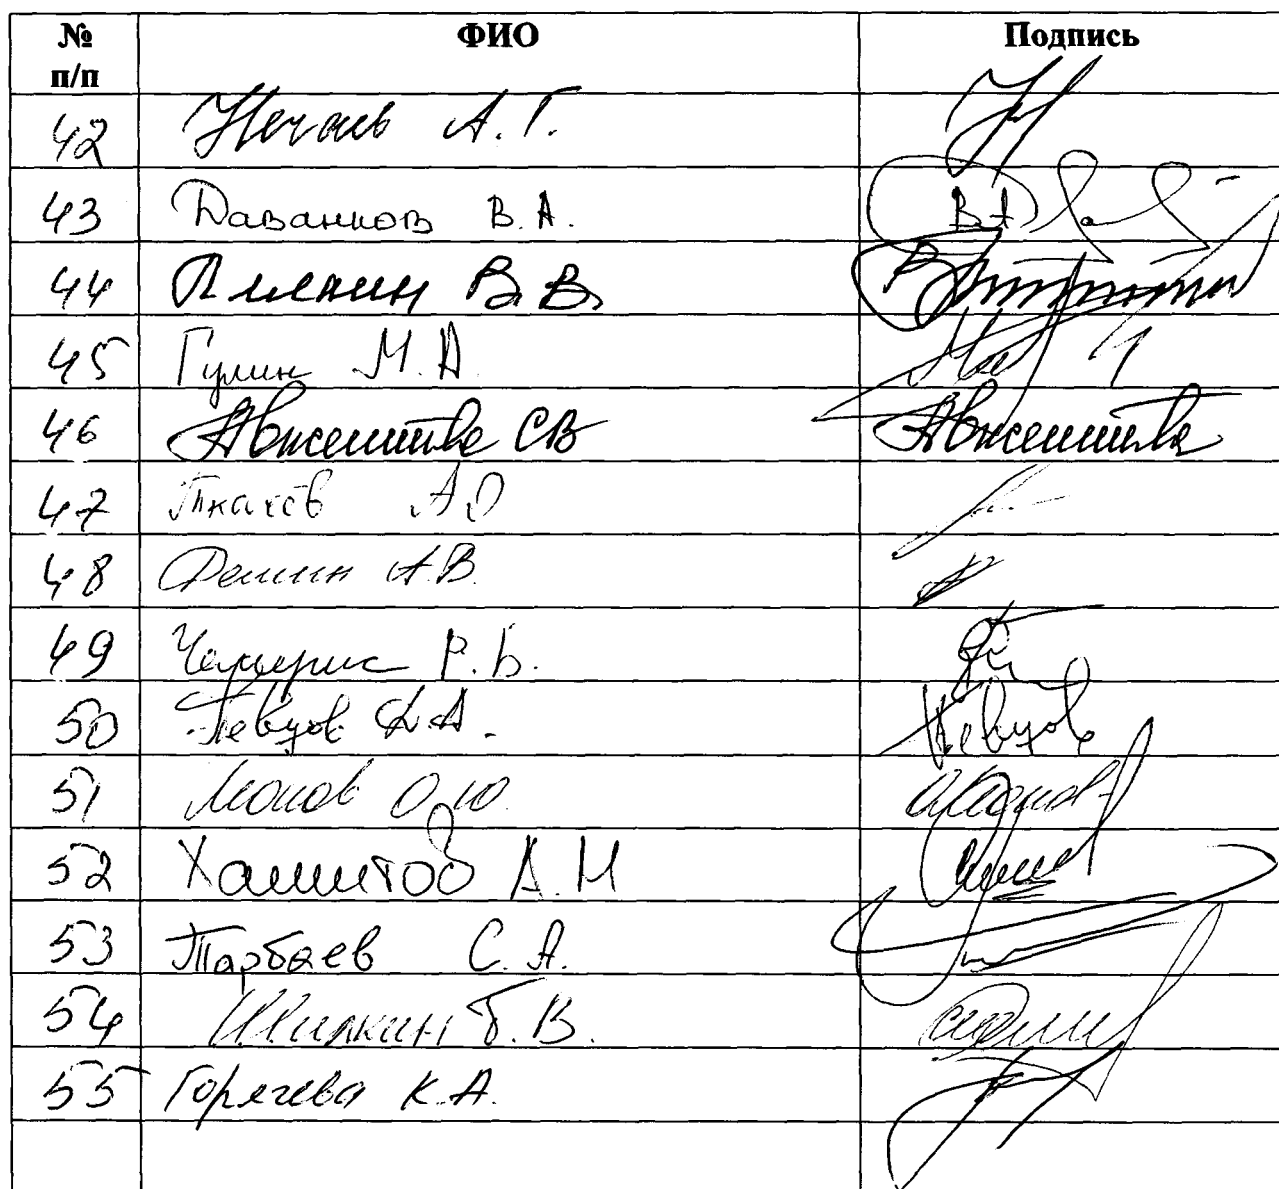 № п/п ФИО Подпись
42 Нечаев А.Г.
43 Даванков В.А. ВА
44 Плякин В.В.
45 Гулин М.А.
46 Авксентьева СВ Авксентьева
47 Ткачёв А О
48 Демин А.В.
49 Чемерис Р.Б.
50 Певцов Д.А. Певцов
51 Леонов О.Ю.
52 Хамитов А.М
53 Тарбаев С.А.
54 Шилкин Г.В.
55 Горячева К.А.